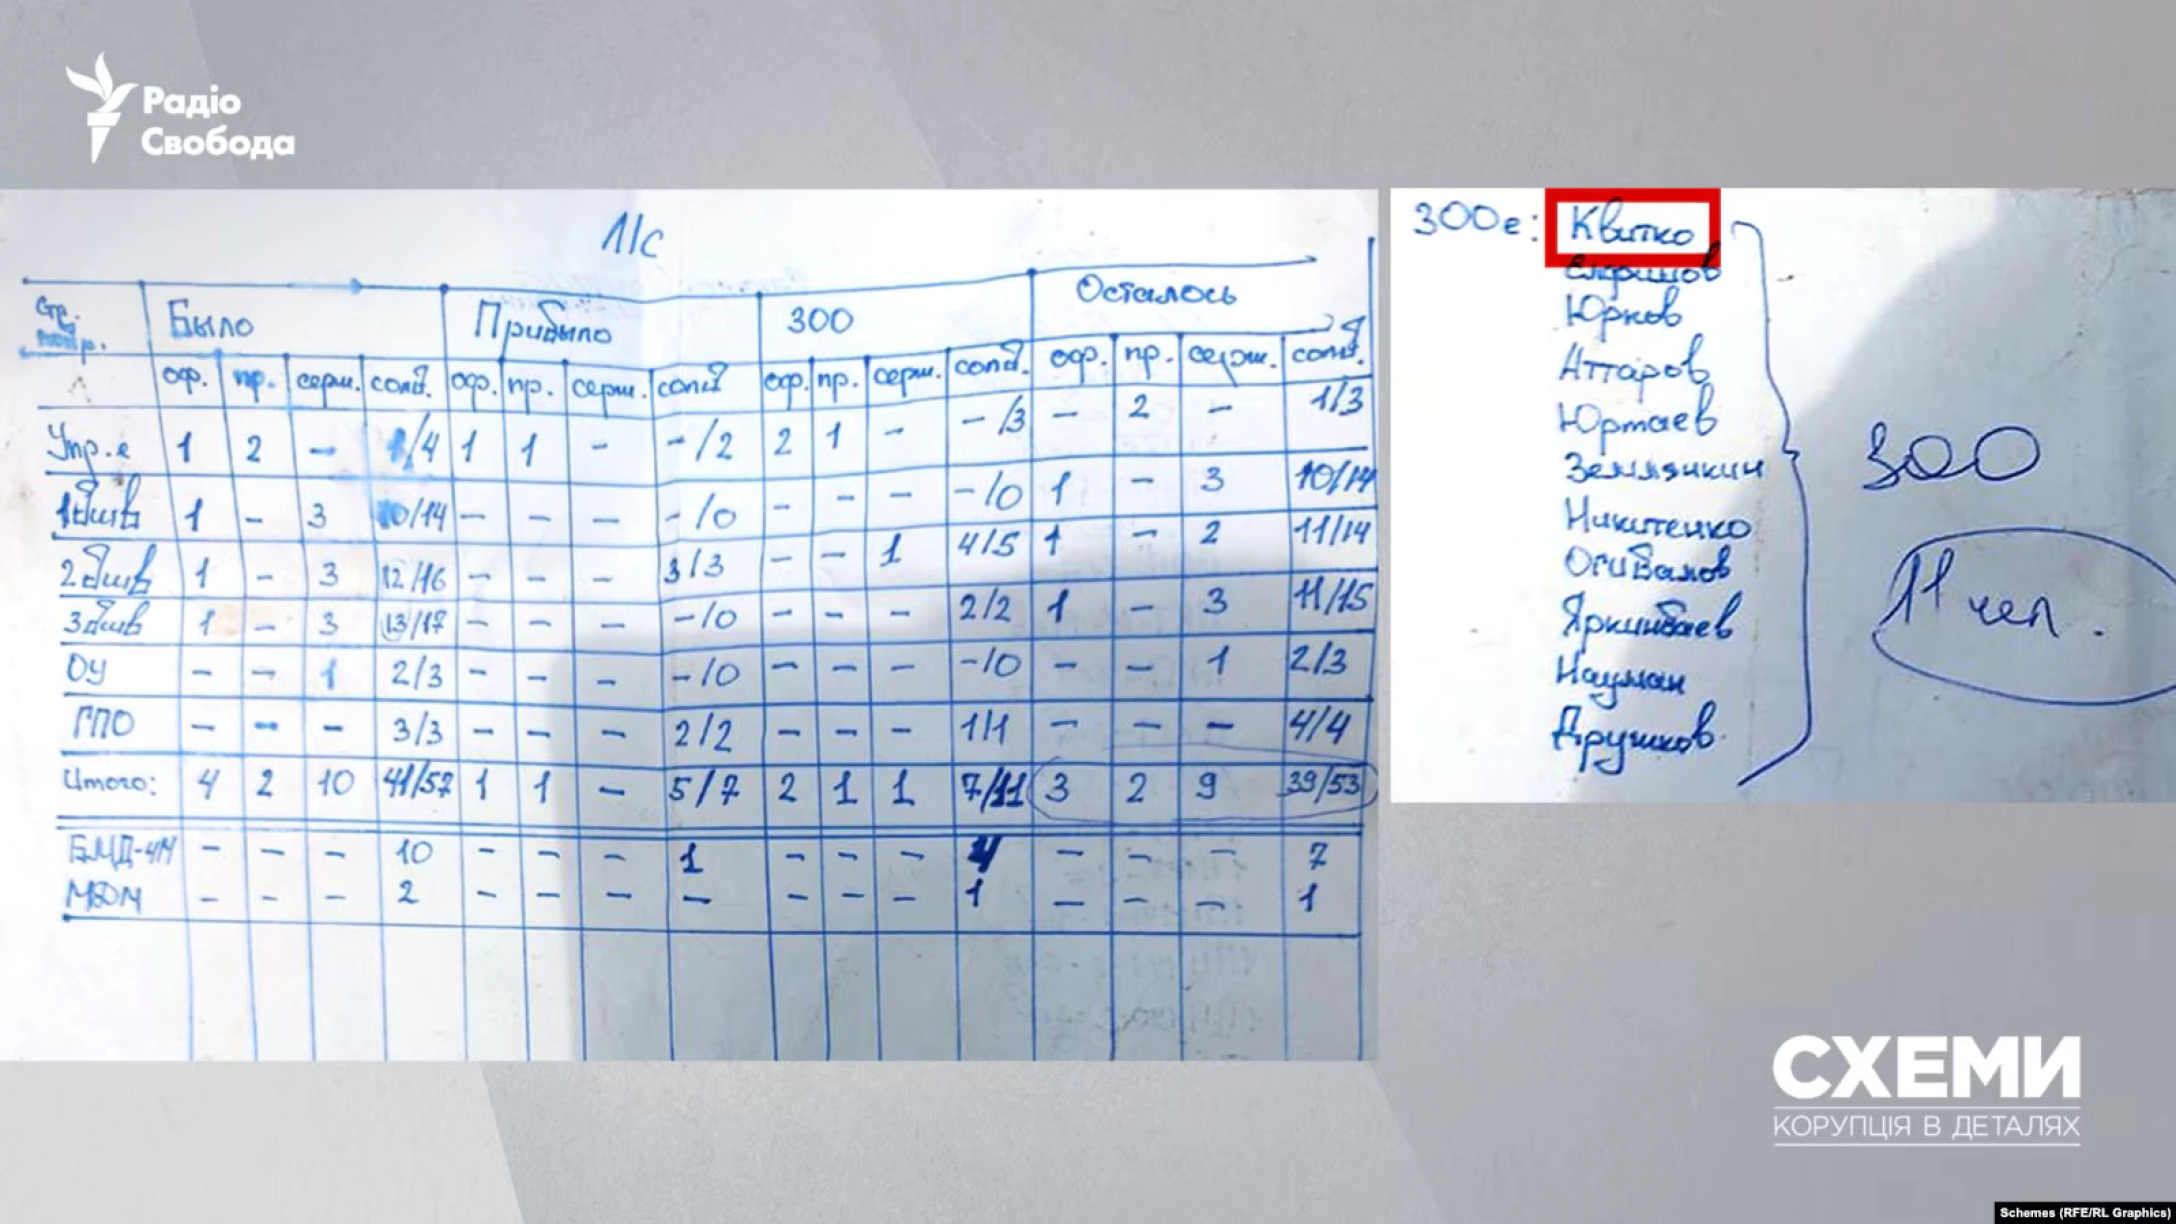 Радіо
Свобода
Л/С
Стр.
Было Прибыло 300 Осталось
оф. пр. серж. солд. оф. пр. серж. солд оф. пр. серж. солд. оф. пр. серж. солд.
Упр.е 1 2 - 1/4 1 1 - -/2 2 1 - -/3 - 2 - 1/3
1 дшв 1 - 3 10/14 - - - -/0 - - - -/0 1 - 3 10/14
2 дшв 1 - 3 12/16 - - - 3/3 - - 1 4/5 1 - 2 11/14
3 дшв 1 - 3 13/17 - - - -/0 - - - 2/2 1 - 3 11/15
ОУ - - 1 2/3 - - - -/0 - - - -/0 - - 1 2/3
ГПО - - - 3/3 - - - 2/2 - - - 1/1 - - - 4/4
Итого: 4 2 10 41/57 1 1 - 5/7 2 1 1 7/11 3 2 9 39/53
БМД-4М - - - 10 - - - 1 - - - 4 - - - 7
- - - 2 - - - - - - - 1 - - - 1
300е: Квитко
Юрков
Аттаров
Юртаев
Землянкин
Никитенко
Огибалов
Яркинбаев
Науман
Дружков
300
11 чел.
СХЕМИ
КОРУПЦІЯ В ДЕТАЛЯХ
Schemes (RFE/RL Graphics)